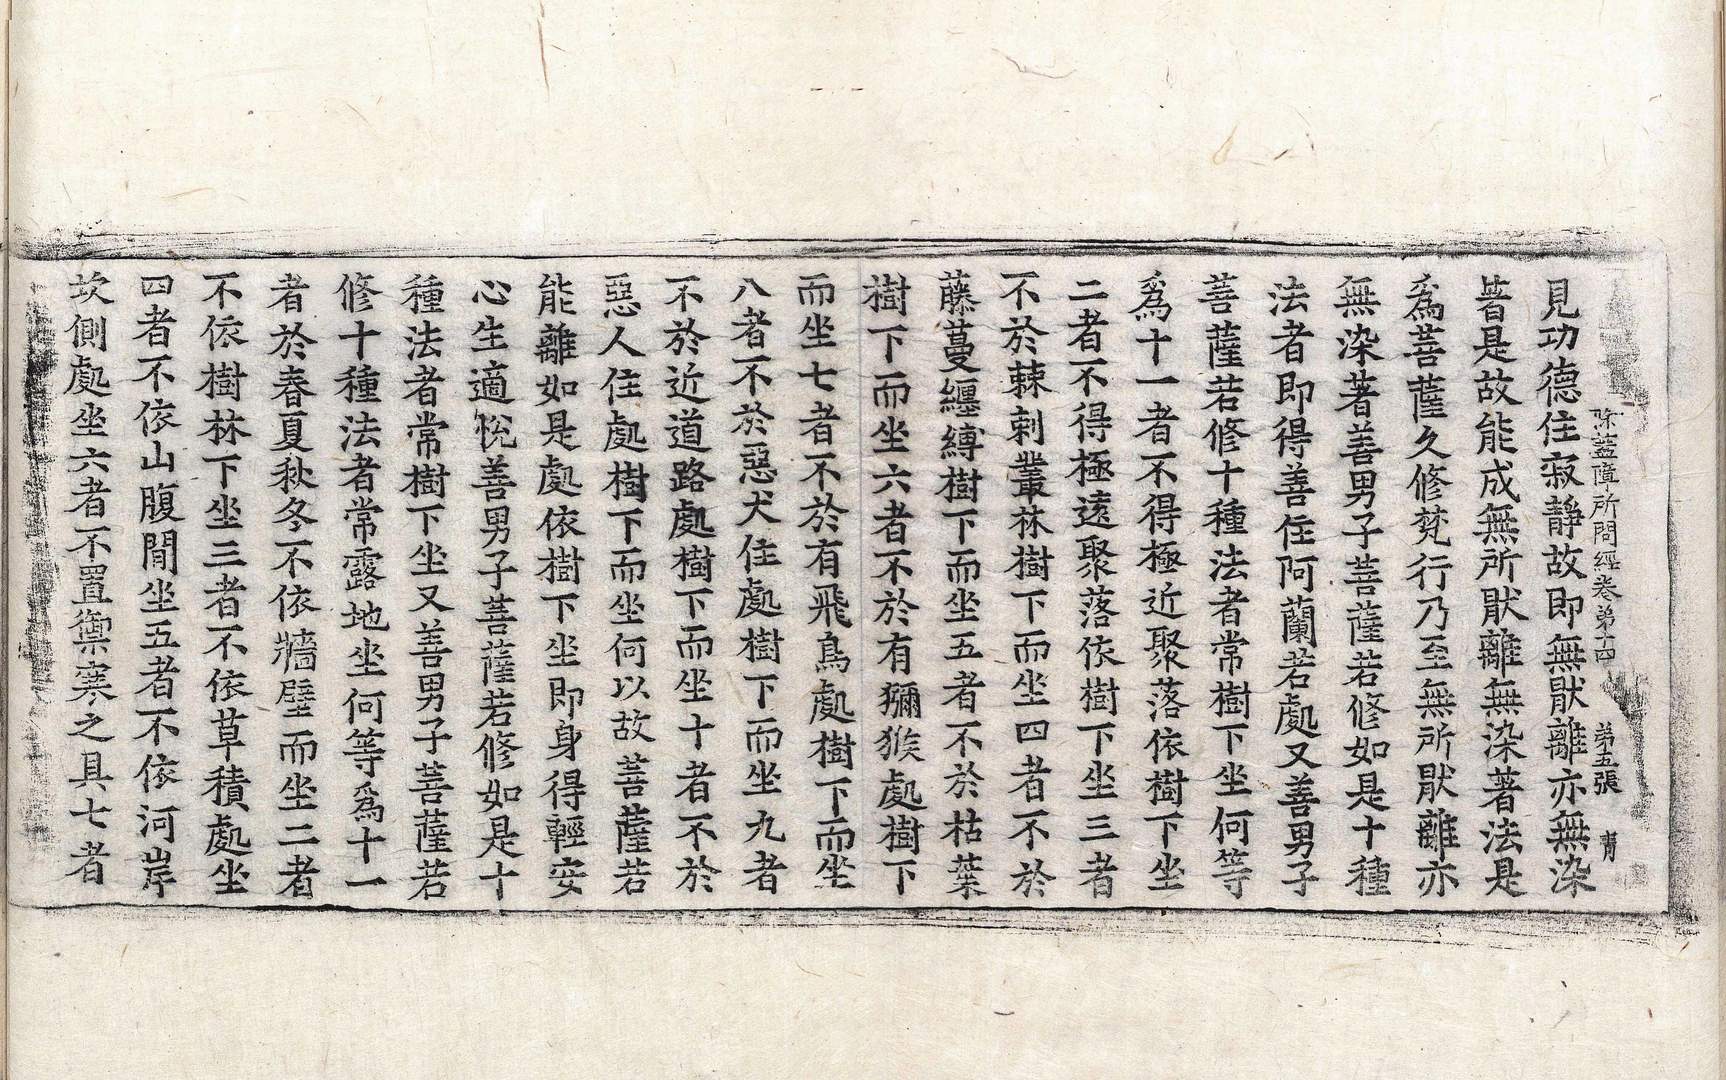 除蓋障所問經卷第十四　第五張　青
見功德住寂靜故即無猒離亦無染
著是故能成無所猒離無染著法是
爲菩薩久修梵行乃至無所猒離亦
無染著善男子菩薩若修如是十種
法者即得善住阿蘭若處又善男子
菩薩若修十種法者常樹下坐何等
爲十一者不得極近聚落依樹下坐
二者不得極遠聚落依樹下坐三者
不於棘刺叢林樹下而坐四者不於
藤蔓纏縛樹下而坐五者不於枯葉
樹下而坐六者不於有獼猴處樹下
而坐七者不於有飛鳥處樹下而坐
八者不於惡犬住處樹下而坐九者
不於近道路處樹下而坐十者不於
惡人住處樹下而坐何以故菩薩若
能離如是處依樹下坐即身得輕安
心生適悅善男子菩薩若修如是十
種法者常樹下坐又善男子菩薩若
修十種法者常露地坐何等爲十一
者於春夏秋冬不依牆壁而坐二者
不依樹林下坐三者不依草積處坐
四者不依山腹間坐五者不依河岸
坎側處坐六者不置禦寒之具七者